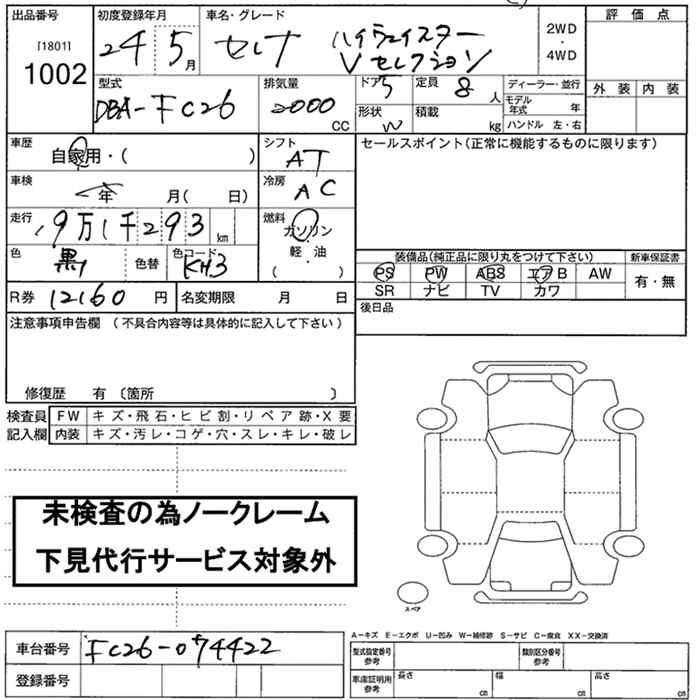 出品番号 初度登録年月 車名・グレード 評価点
[1801] 1002 24 5月 セレナ ハイウェイスター Vセレクション 2WD・4WD
型式 排気量 ドア 5 定員 8人 ディーラー・並行 外装 内装
DBA-FC26 2000CC 形状 W 積載 kg モデル年式 年 ハンドル 左・右
車歴 自家用・( ) シフト AT セールスポイント(正常に機能するものに限ります)
車検 年 月( 日) 冷房 AC
走行 19万1千293km 燃料 ガソリン・軽油 ( )
色 黒 色替 色コード KH3 装備品(純正品に限り丸をつけて下さい) 新車保証書
PS PW ABS エアB AW 有・無
SR ナビ TV カワ
R券 12160円 名変期限 月 日 後日品
注意事項申告欄 (不具合内容等は具体的に記入して下さい)
修復歴 有 〔箇所 〕
検査員 FW キズ・飛石・ヒビ割・リペア跡・X要
記入欄 内装 キズ・汚レ・コゲ・穴・スレ・キレ・破レ
未検査の為ノークレーム
下見代行サービス対象外
スペア
A−キズ E−エクボ U−凹み W−補修跡 S−サビ C−腐食 XX−交換済
車台番号 FC26-074422 型式指定番号 参考 類別区分番号 参考
登録番号 車庫証明用 参考 長さ cm 幅 cm 高さ cm